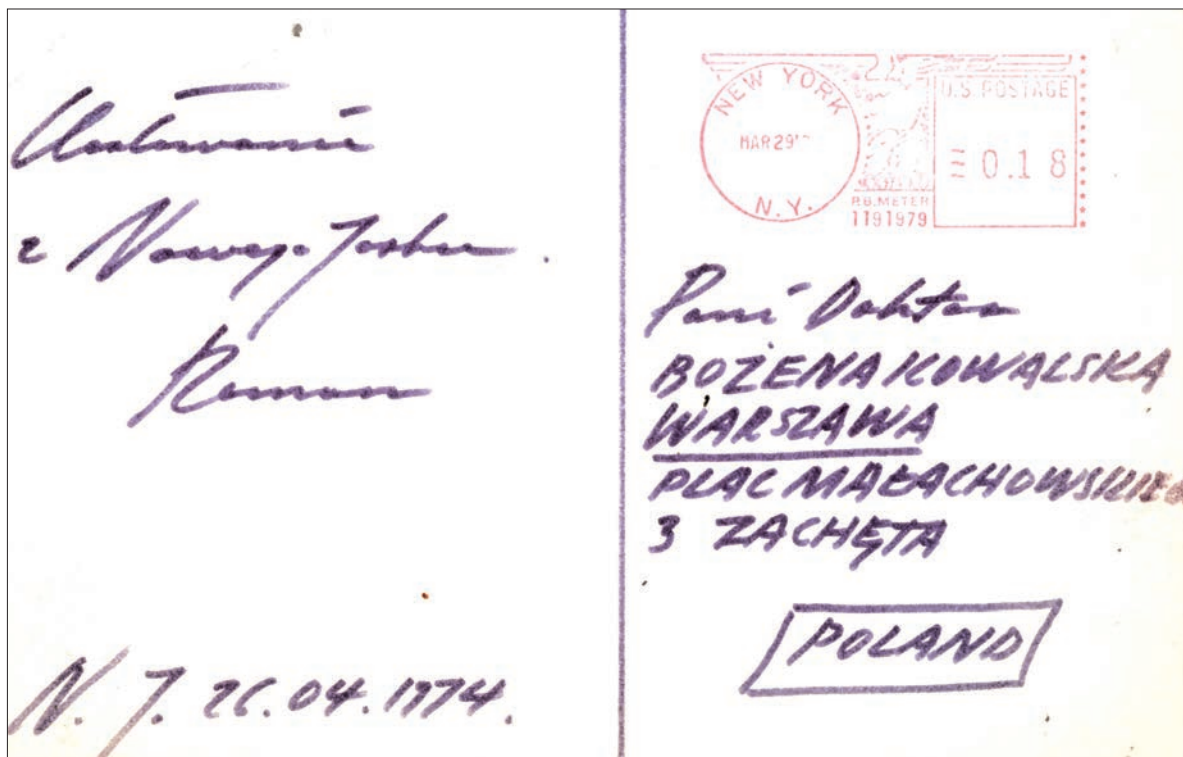 Ucałowania
z Nowego Jorku.
Roman
N. J. 26.04.1974.
NEW YORK
MAR 29
N.Y.
P.B. METER
1191979
U.S. POSTAGE
0.18
Pani Doktor
BOŻENA KOWALSKA
WARSZAWA
PLAC MAŁACHOWSKIEGO
3 ZACHĘTA
POLAND